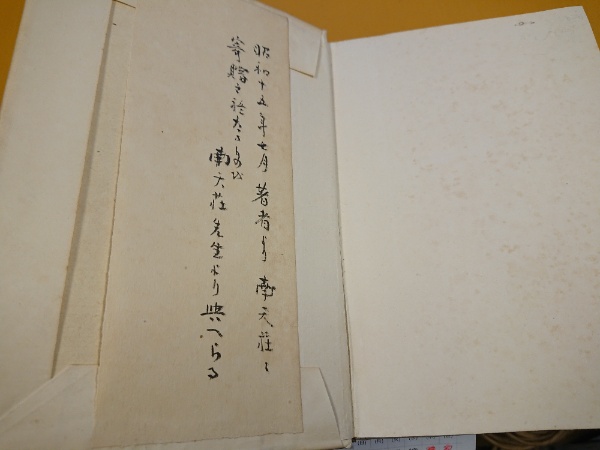 昭和十五年七月著者より南天荘に
寄贈を経たるもの
南天荘先生より與へらる